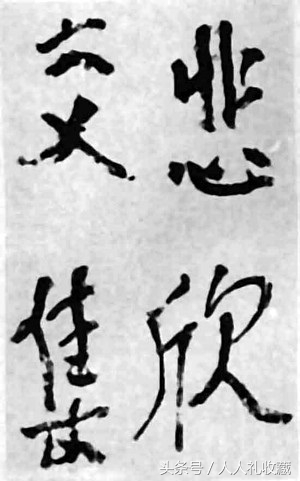 悲欣
交集
头条号/人人礼收藏